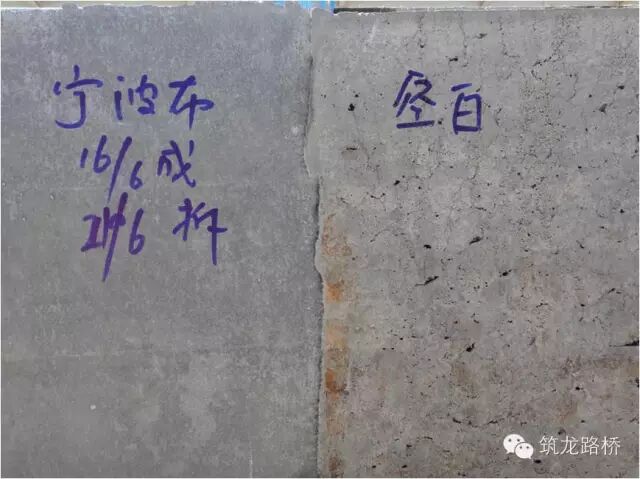 宁波布
16/6 成
21/6 拆
空白
筑龙路桥